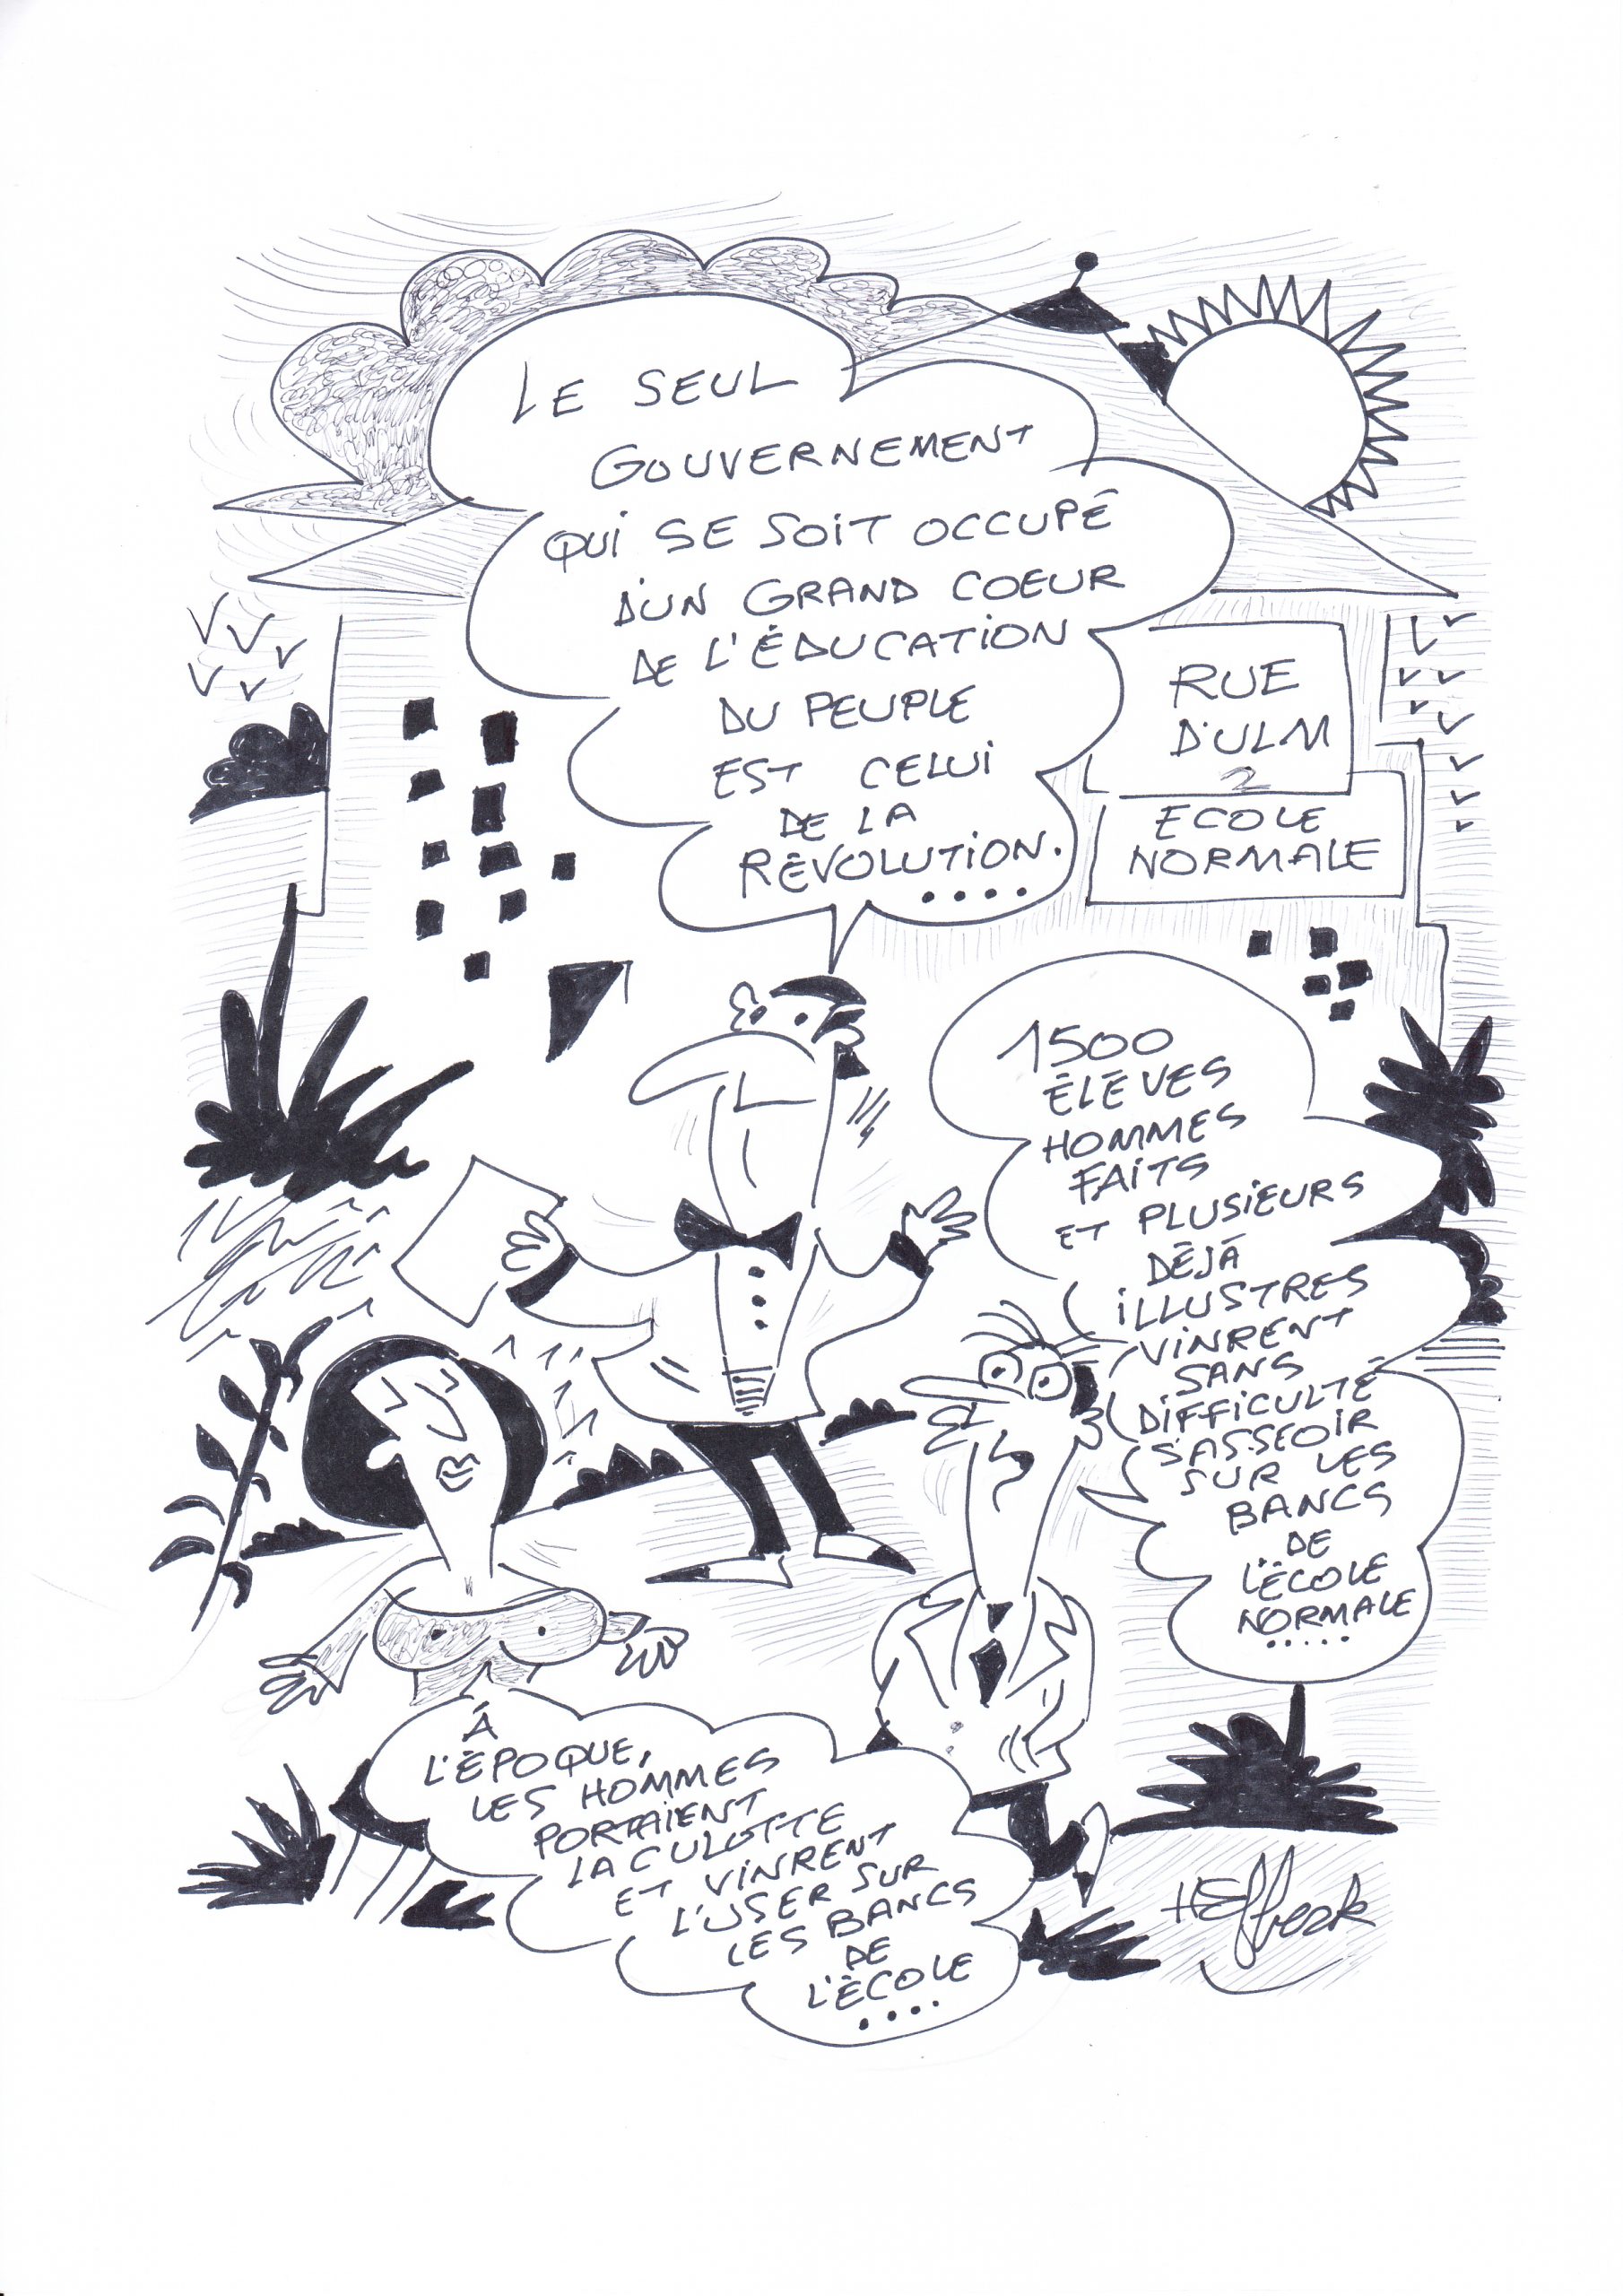 LE SEUL
GOUVERNEMENT
QUI SE SOIT OCCUPÉ
D'UN GRAND COEUR
DE L'ÉDUCATION
DU PEUPLE
EST CELUI
DE LA
RÉVOLUTION.
....
RUE
D'ULM
2
ECOLE
NORMALE
1500
ÉLÉVES
HOMMES
FAITS
ET PLUSIEURS
DÉJÀ
ILLUSTRES
VINRENT
SANS
DIFFICULTÉ
S'ASSEOIR
SUR LES
BANCS
DE
L'ÉCOLE
NORMALE
.....
À
L'ÉPOQUE,
LES HOMMES
PORTAIENT
LA CULOTTE
ET VINRENT
L'USER SUR
LES BANCS
DE
L'ÉCOLE
....